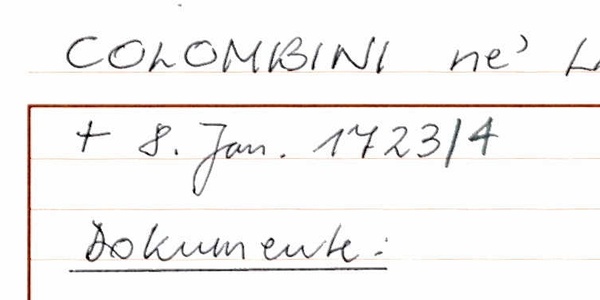 COLOMBINI ne' L
+ 8. Jan. 1723/4
Dokumente: